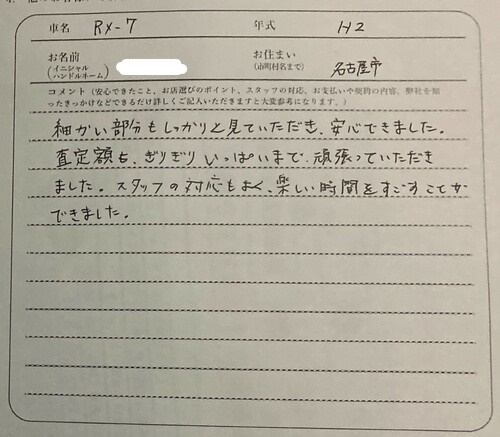 車名 RX-7 年式 H2
お名前 (イニシャル ハンドルネーム) お住まい (市町村名まで) 名古屋市
コメント（安心できたこと、お店選びのポイント、スタッフの対応、お支払いや契約の内容、弊社を知
ったきっかけなどできるだけ詳しくご記入いただきますと大変参考になります。）
細かい部分もしっかりと見ていただき、安心できました。
査定額も、ぎりぎりいっぱいまで、頑張っていただき
ました。スタッフの対応もよく、楽しい時間をすごすことが
できました。